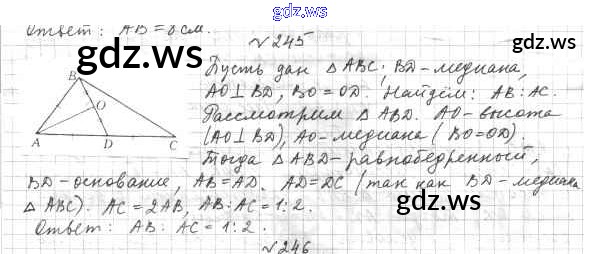 gdz.ws
Ответ: AB = 8 см.
№ 245
Пусть дан △ ABC; BD - медиана,
AO ⊥ BD, BO = OD. Найдём: AB : AC.
Рассмотрим △ ABD. AO - высота
(AO ⊥ BD), AO - медиана (BO = OD).
Тогда △ ABD - равнобедренный,
BD - основание, AB = AD. AD = DC (так как BD - медиана
△ ABC). AC = 2AB, AB : AC = 1 : 2.
Ответ: AB : AC = 1 : 2.
№ 246
B
O
A
D
C
gdz.ws
gdz.ws
gdz.ws
gdz.ws